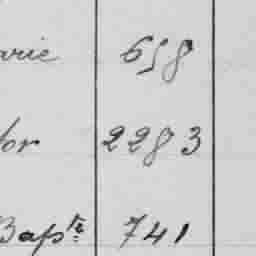 arie 658
tor 2283
Bapte 741